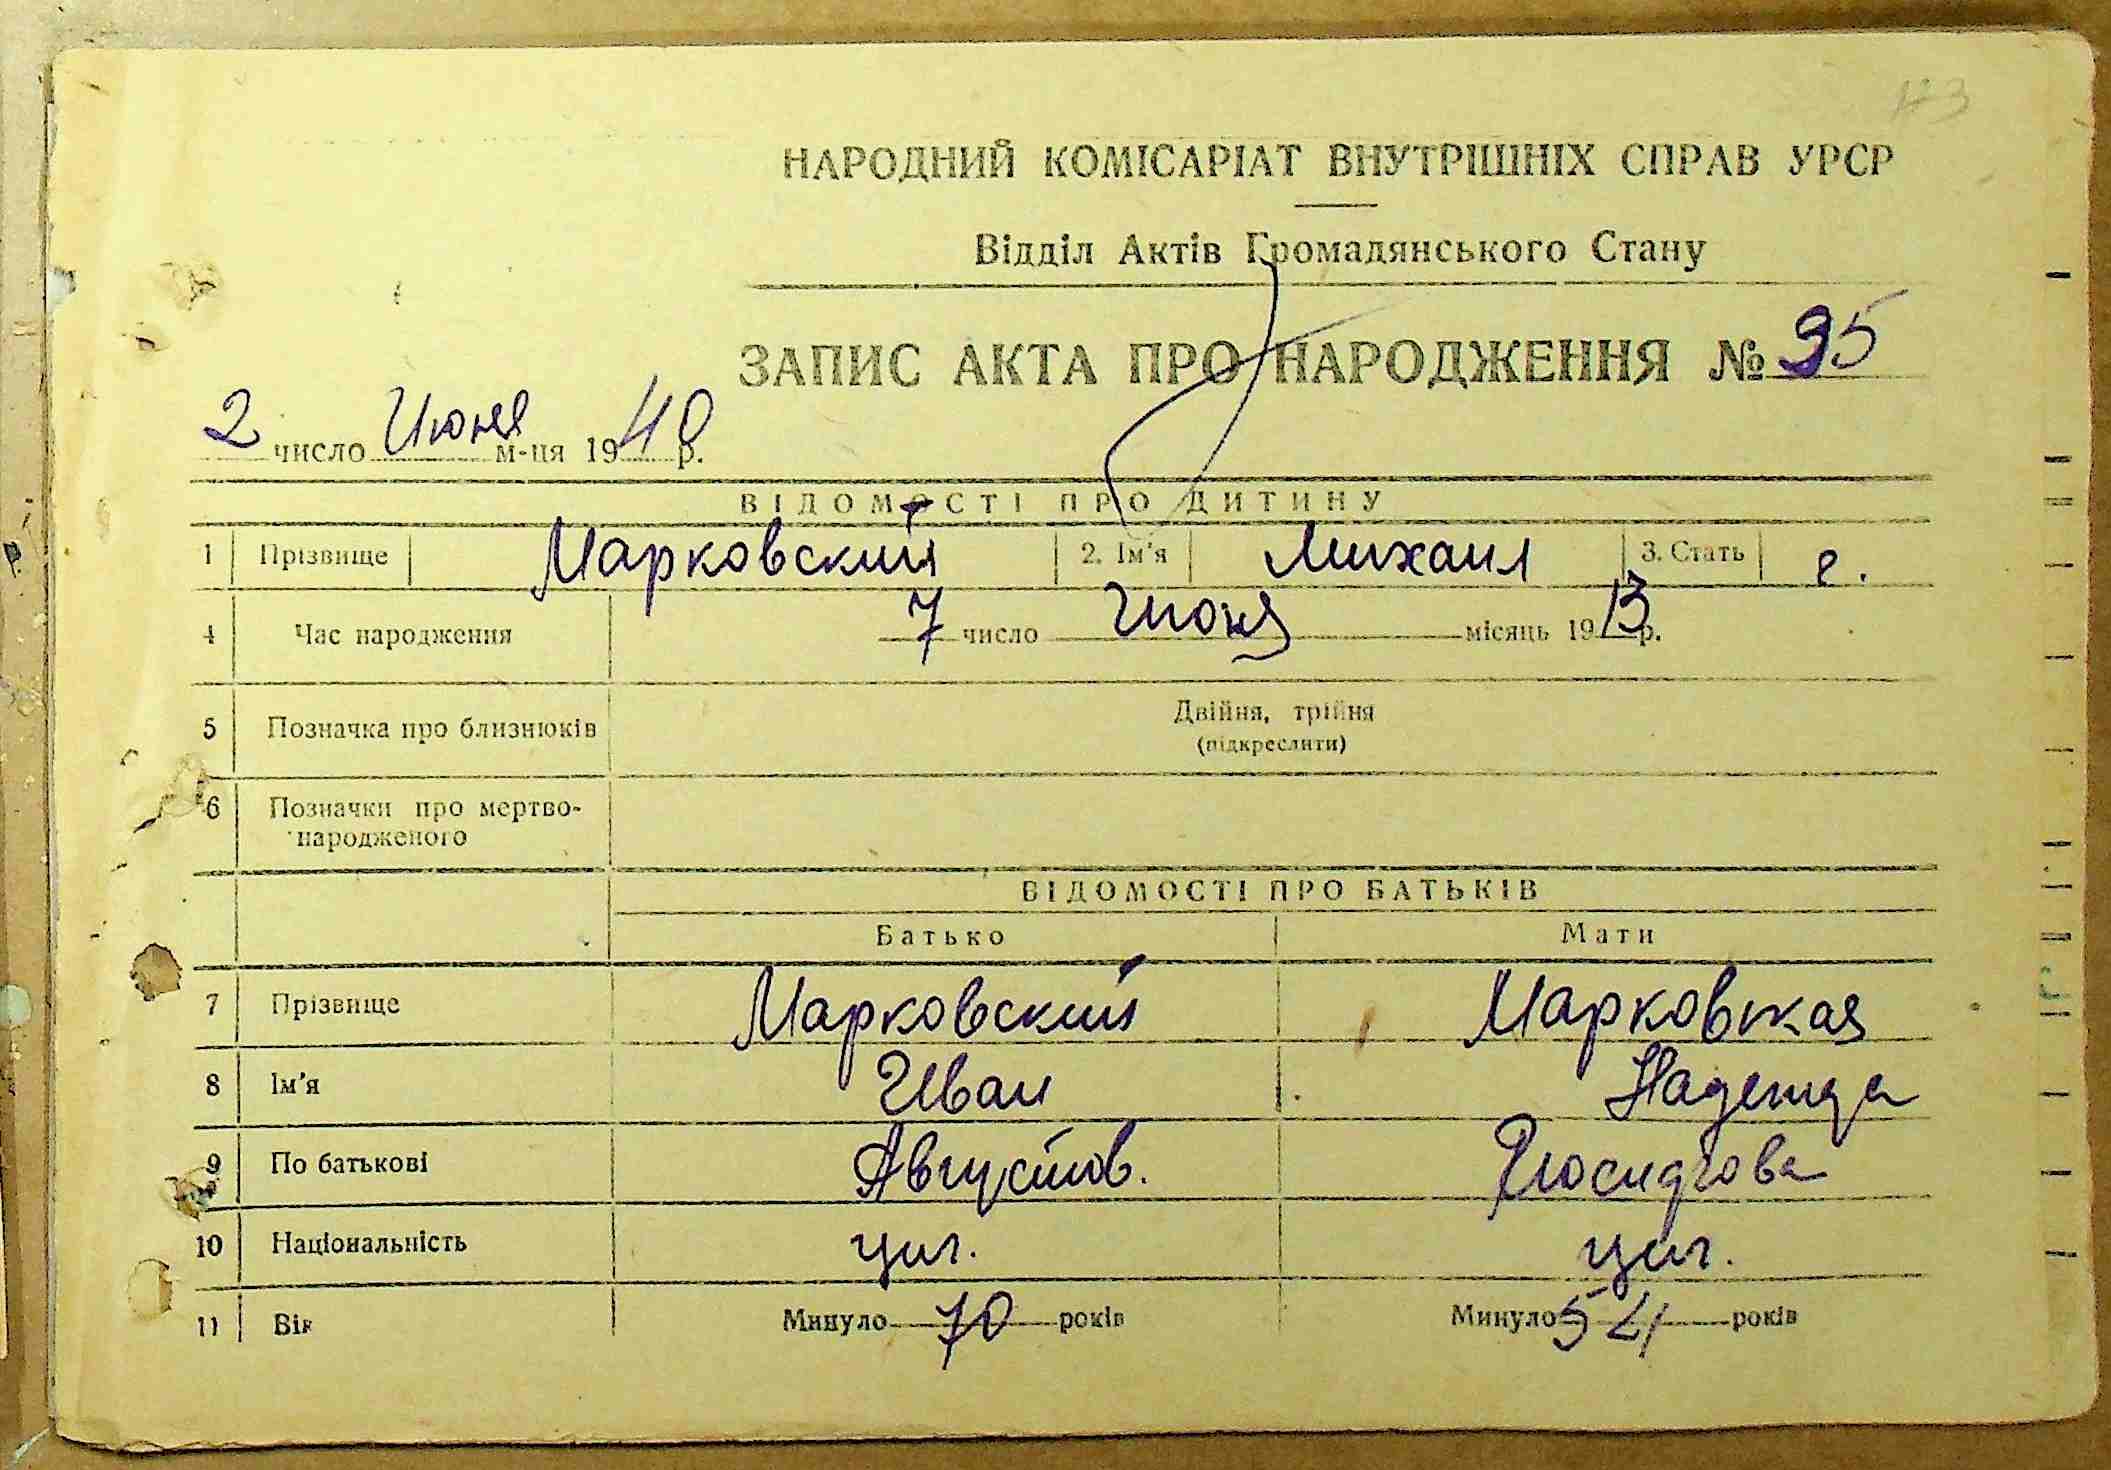 НАРОДНИЙ КОМІСАРІАТ ВНУТРІШНІХ СПРАВ УРСР
Відділ Актів Громадянського Стану
ЗАПИС АКТА ПРО НАРОДЖЕННЯ № 95
2 число Июня м-ця 1940 р.
ВІДОМОСТІ ПРО ДИТИНУ
1 Прізвище Марковский 2. Ім'я Михаил 3. Стать
4 Час народження 7 число Июня місяць 1913 р.
5 Позначка про близнюків Двійня, трійня
(підкреслити)
6 Позначки про мертво-
народженого
ВІДОМОСТІ ПРО БАТЬКІВ
Батько Мати
7 Прізвище Марковский Марковская
8 Ім'я Иван Надежда
9 По батькові Августов.
10 Національність циг. циг.
11 Вік Минуло 70 років Минуло 54 років